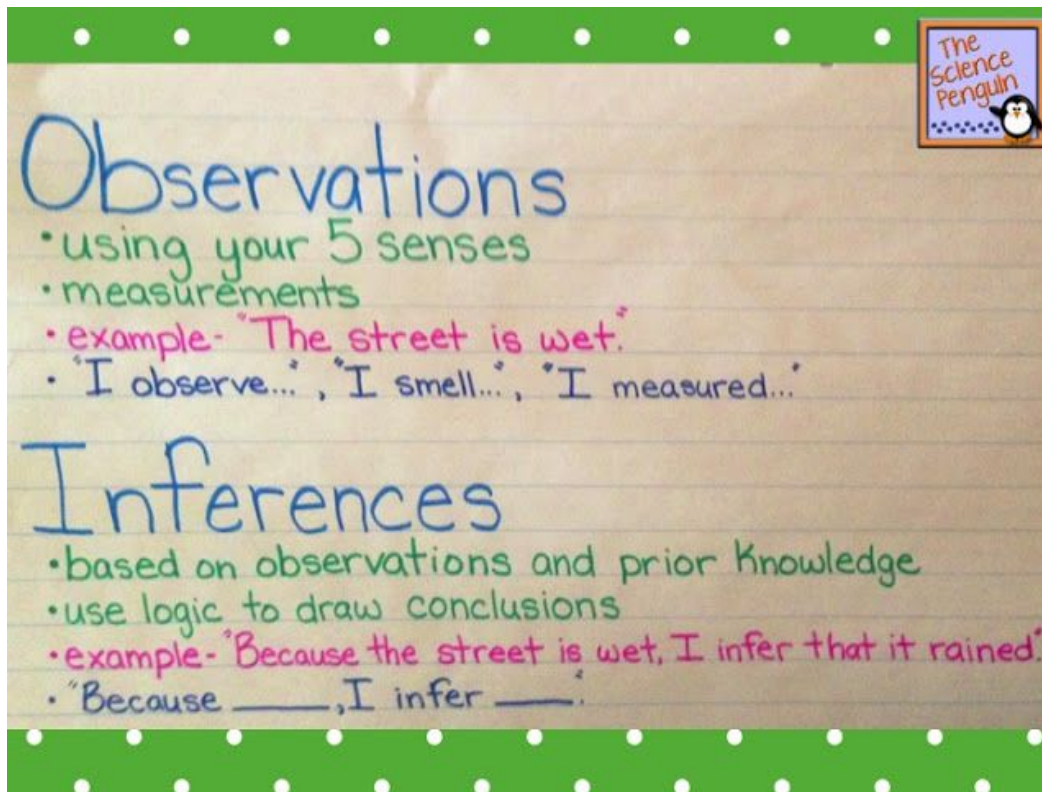 The
Science
Penguin
Observations
• using your 5 senses
• measurements
• example- "The street is wet."
• "I observe...", "I smell...", "I measured..."
Inferences
• based on observations and prior knowledge
• use logic to draw conclusions
• example- "Because the street is wet, I infer that it rained."
• "Because ____, I infer ____."